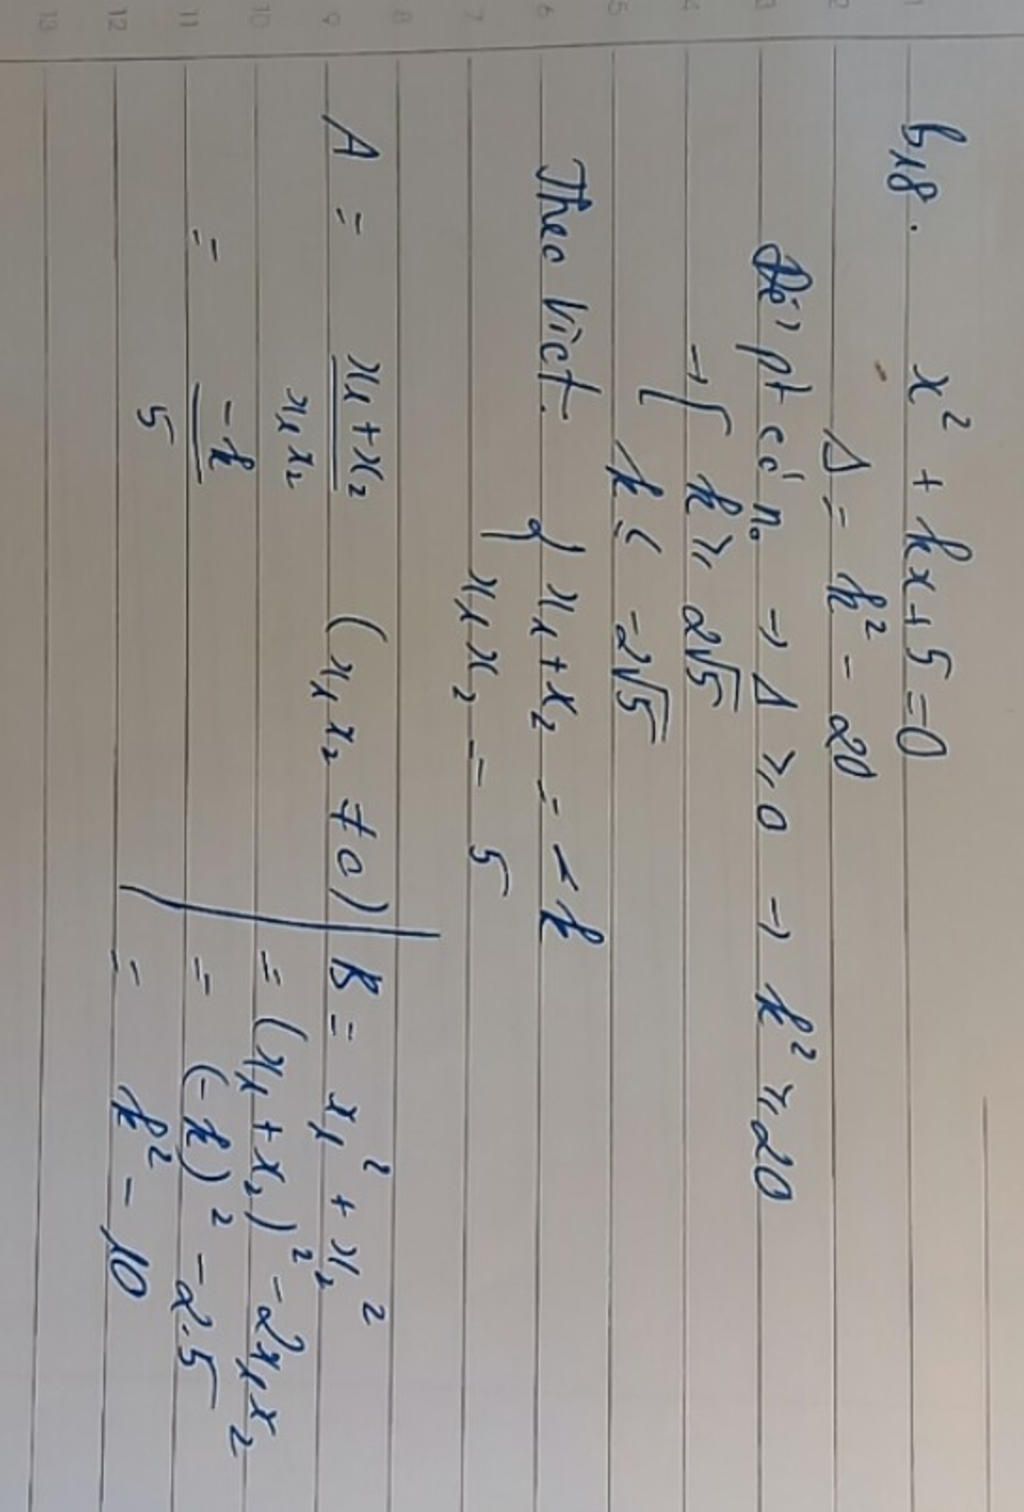 b18. x² + kx + 5 = 0
Δ = k² - 20
Để pt có n₀ → Δ ⩾ 0 → k² ⩾ 20
→ [ k ⩾ 2√5
k ≤ -2√5
Theo Viet: { x₁ + x₂ = -k
x₁x₂ = 5
A = (x₁ + x₂)/(x₁x₂) (x₁x₂ ≠ 0)
= -k/5
B = x₁² + x₂²
= (x₁ + x₂)² - 2x₁x₂
= (-k)² - 2.5
= k² - 10
1 2 3 4 5 6 7 8 9 10 11 12 13